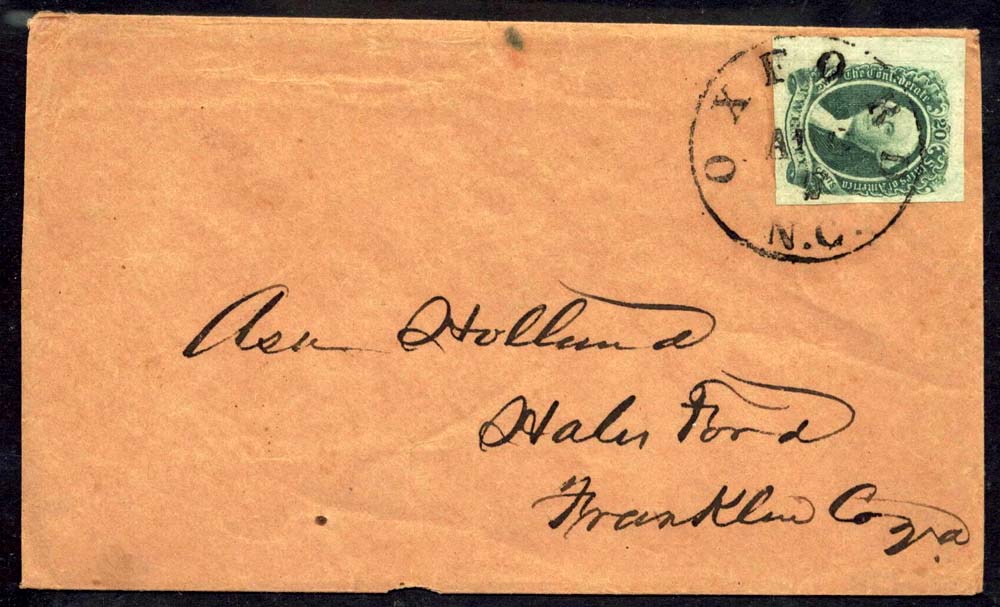 OXFORD
N.C.
The Confederate
States of America
20
Asa Holland
Hales Ford
Franklin Co Va